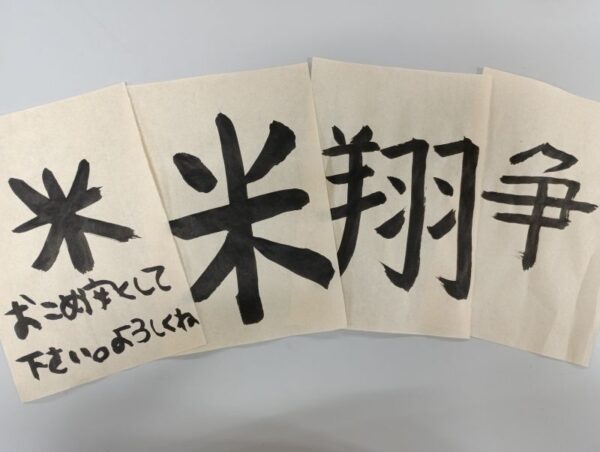 米
おこめ安くして
下さい。よろしくね
米
翔
争